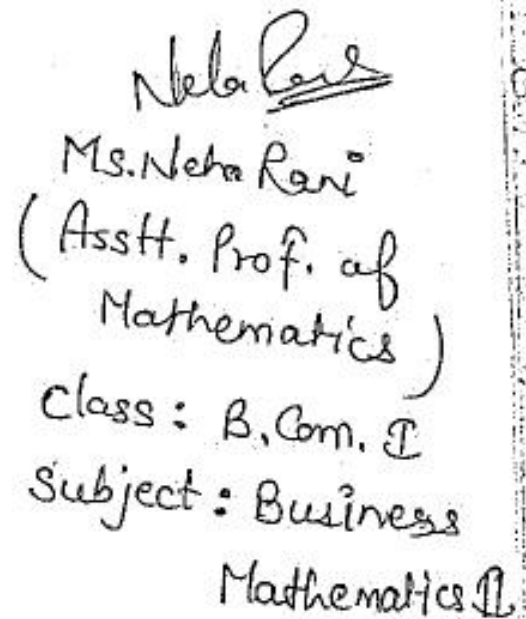 Neha Rani
Ms. Neha Rani
(Asstt. Prof. of
Mathematics)
Class: B.Com. I
Subject: Business
Mathematics II